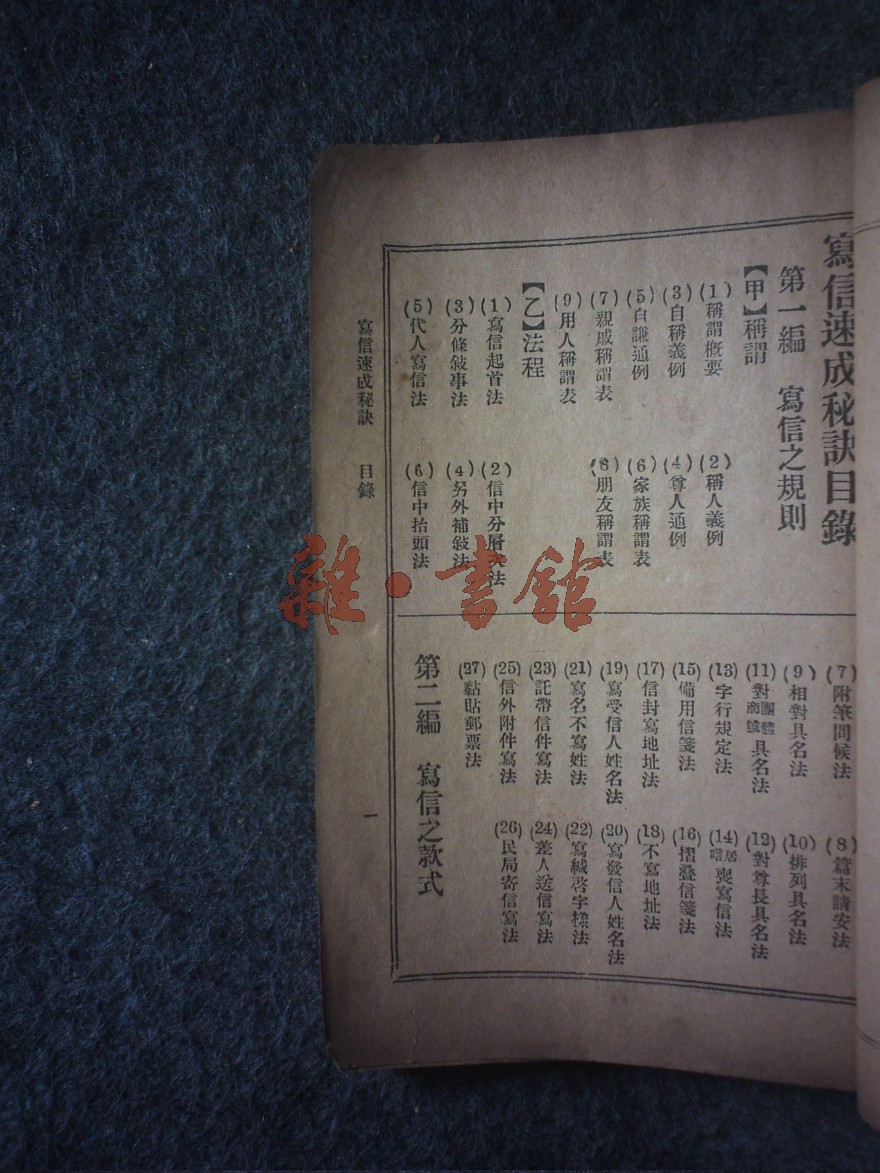 寫信速成秘訣目錄
第一編　寫信之規則
【甲】稱謂
(1)稱謂概要　(2)稱人義例
(3)自稱義例　(4)尊人通例
(5)自謙通例　(6)家族稱謂表
(7)親戚稱謂表　(8)朋友稱謂表
(9)用人稱謂表
【乙】法程
(1)寫信起首法　(2)信中分層次法
(3)分條敍事法　(4)另外補敍法
(5)代人寫信法　(6)信中抬頭法
(7)附筆問候法　(8)篇末請安法
(9)相對具名法　(10)排列具名法
(11)對團體商號具名法　(12)對尊長具名法
(13)字行規定法　(14)居喪寫信法
(15)備用信箋法　(16)摺疊信箋法
(17)信封寫地址法　(18)不寫地址法
(19)寫受信人姓名法　(20)寫發信人姓名法
(21)寫名不寫姓法　(22)寫緘啓字樣法
(23)託帶信件寫法　(24)差人送信寫法
(25)信外附件寫法　(26)民局寄信寫法
(27)黏貼郵票法
第二編　寫信之款式
寫信速成秘訣　目錄
一
雜·書館